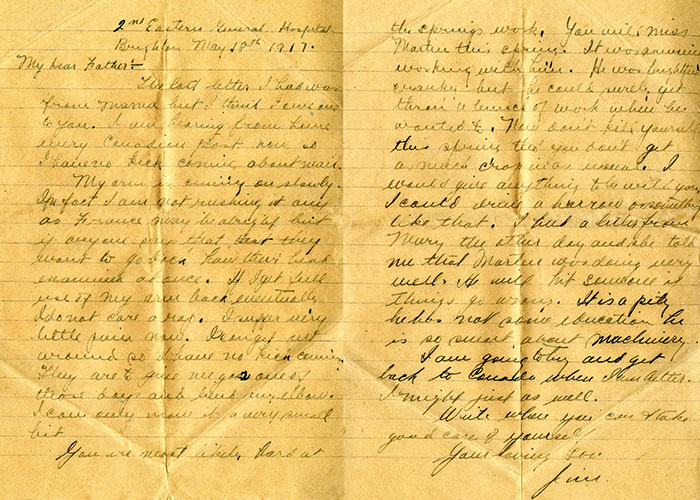 2nd Eastern General Hospital
Brighton May 18th 1917.
My Dear Father:-
The last letter I had was
from Mamma but I think I owe one
to you. I am hearing from home
every Canadian post now so
I have no kick coming about mail.
My arm is coming on slowly.
In fact I am not rushing it any
as France may be alright but
if anyone says that that they
want to go back have their head
examined at once. If I get full
use of my arm back eventually
I do not care a rap. I suffer very
little pain now. I can get out
around so I have no kick coming
They are to give me gas one of
these days and bend my elbow.
I can only move it a very small
bit
You are most likely hard at
the springs work. You will miss
Martin this spring. It was
working with him. He was
cranky but he could surely get
through a bunch of work when he
wanted to. Now don't kill yourself
this spring tho you don't get
as much crop in as usual. I
would give anything to be with you
I could drive a harrow or something
like that. I had a letter from
Mary the other day and she told
me that Martin was doing very
well. He will hit someone if
things go wrong. It is a pity
he has not some education he
is so smart about machinery.
I am going to try and get
back to Canada when I am better.
I might just as well.
Write when you can & take
good care of yourself
Your loving Son
Jim.